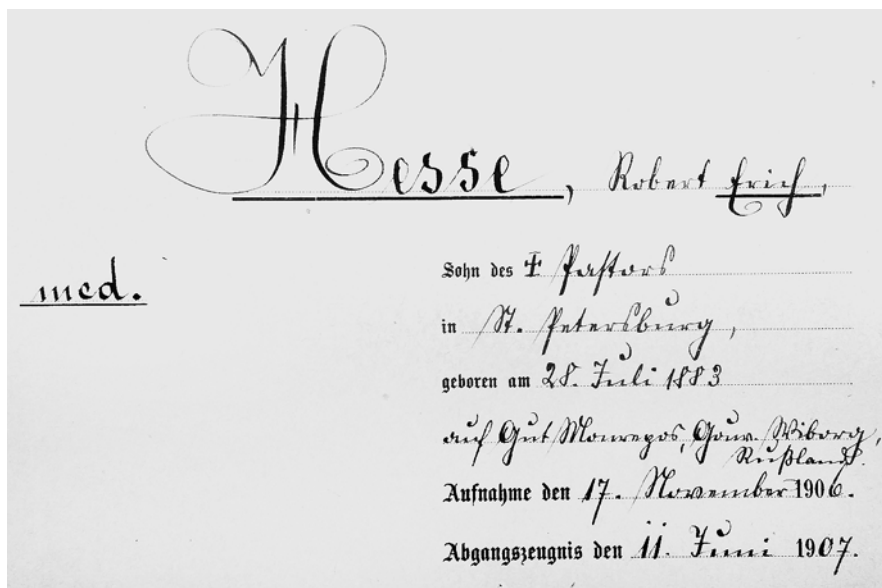 Hesse, Robert Erich,
med.
Sohn des ✝ Pastors
in St. Petersburg,
geboren am 28. Juli 1883
auf Gut Monrepos, Gouv. Wiborg,
Rußland.
Aufnahme den 17. November 1906.
Abgangszeugnis den 11. Juni 1907.